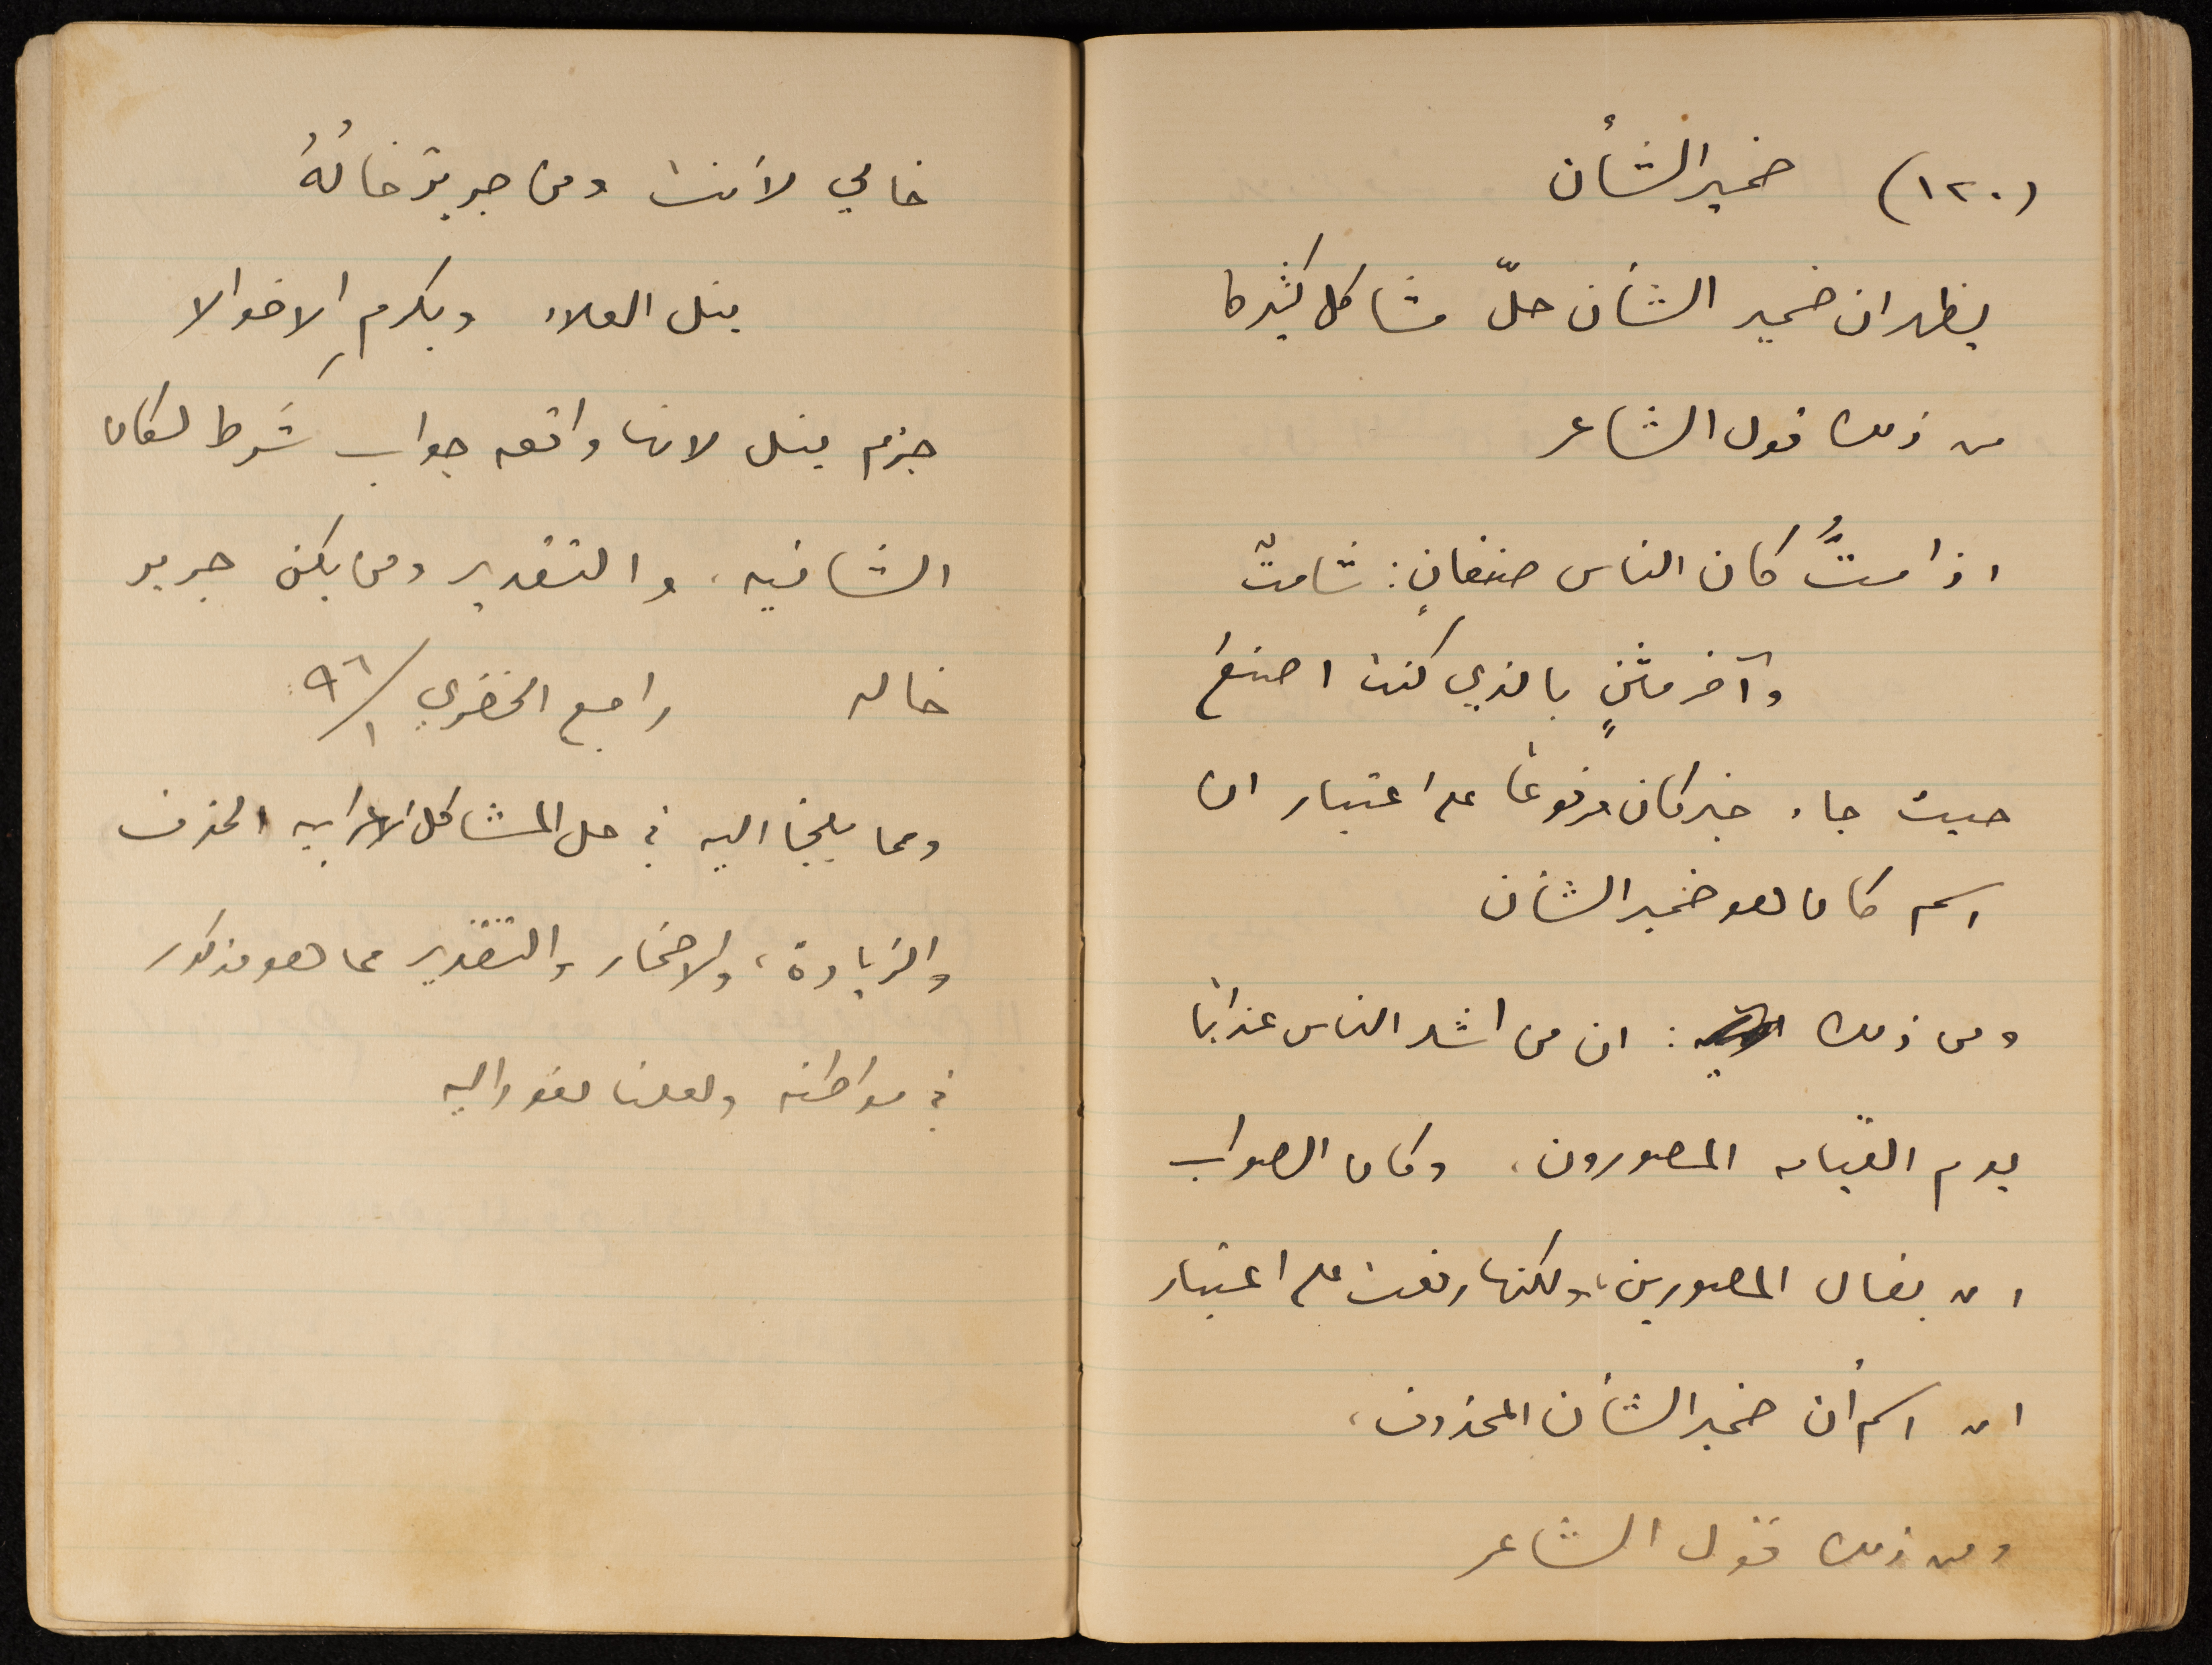 (١٢٠) ضمير الشأن
يظهر ان ضمير الشأن حلّ مشاكل كثيرة
من ذلك قول الشاعر
اذا متُّ كان الناس صنفانِ: شامتٌ
وآخر مثنٍ بالذي كنت اصنع
حيث جاء خبر كان مرفوعًا على اعتبار ان
اسم كان هو ضمير الشأن
ومن ذلك : ان من اشد الناس عذابًا
يوم القيامه المصورون، وكان الصواب
ان يقال المصورين، ولكنها رفعت على اعتبار
ان اسم أن ضمير الشأن المحذوف،
ومن ذلك قول الشاعر
خالي لأنت ومن جرير خالُهُ
ينل العلاء ويكرمِ الاخوالا
جزم ينل لانها واقعه جواب شَرط لكان
الشانيه، والتقدير ومن يكن جرير
خاله راجع الخضري ٩٦/١
ومما يلجأ اليه في حل المشاكل الاعرابيه الحذف
والزيادة، والاضمار والتقدير مما هو مذكور
في مواطنه ولعلنا نعود اليه